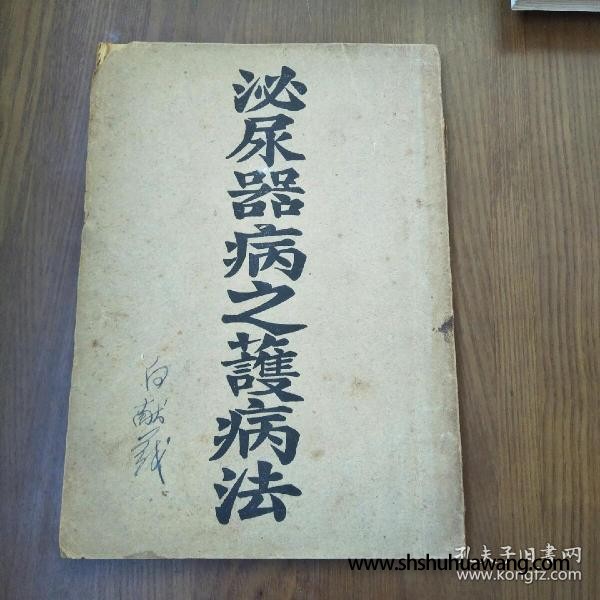 泌尿器病之護病法
白献義
www.shshuhuawang.com
孔夫子旧書网
www.kongfz.com